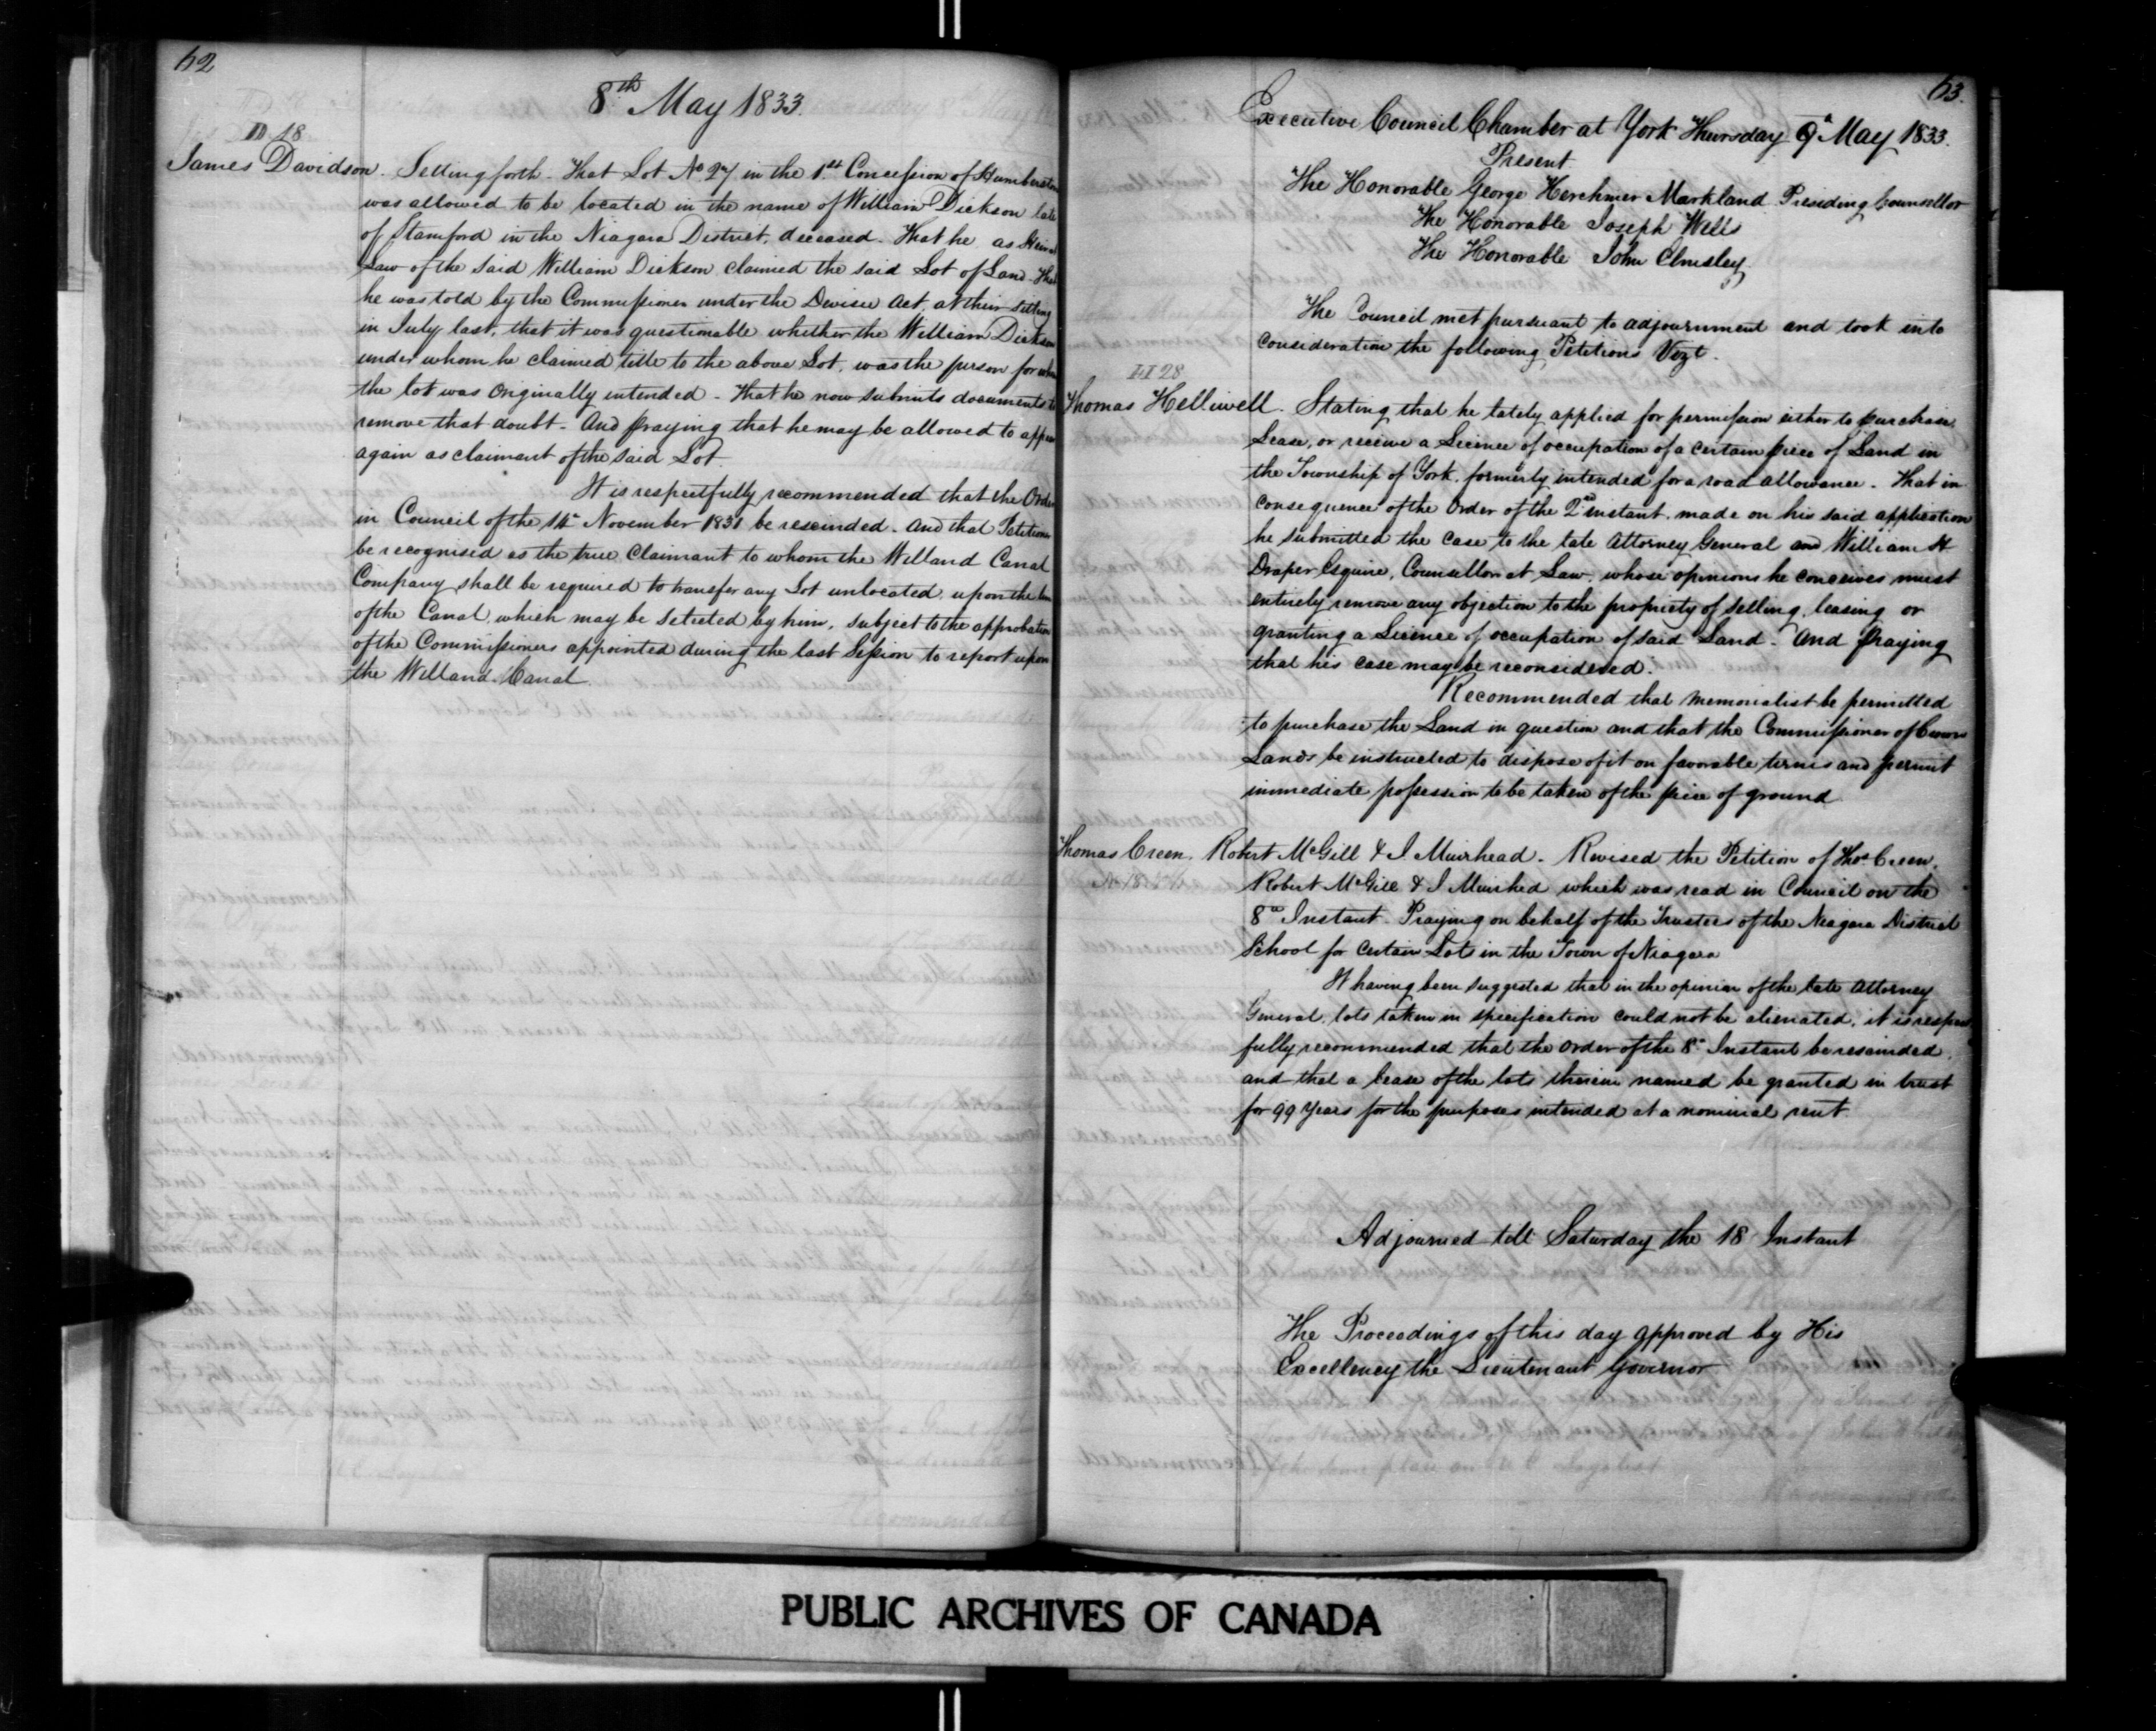 62
8th May 1833.
D 18
James Davidson. Setting forth - That Lot No 27 in the 1st Concession of Humberstone
was allowed to be located in the name of William Dickson late
of Stamford in the Niagara District, deceased. That he as Heir at
Law of the said William Dickson claimed the said Lot of Land. That
he was told by the Commissioner under the Devisee Act at their sitting
in July last, that it was questionable whether the William Dickson
under whom he claimed title to the above Lot, was the person for whom
the lot was originally intended - That he now submits documents to
remove that doubt - And Praying that he may be allowed to appear
again as claimant of the said Lot.
It is respectfully recommended that the Order
in Council of the November 1831 be rescinded. And that Petitioner
be recognised as the true Claimant to whom the Welland Canal
Company shall be required to transfer any Lot unlocated, upon the line
of the Canal, which may be selected by him, subject to the approbation
of the Commissioners appointed during the last Session to report upon
the Welland Canal.
63.
Executive Council Chamber at York Thursday 9th May 1833.
Present
The Honorable George Herchmer Markland Presiding Counsellor
The Honorable Joseph Wells
The Honorable John Elmsley
The Council met pursuant to adjournment and took into
consideration the following Petitions Vizt.
H 28
Thomas Helliwell. Stating that he lately applied for permission either to purchase,
Lease, or receive a Licence of occupation of a certain piece of Land in
the Township of York, formerly intended for a road allowance. That in
consequence of the Order of the 2nd instant, made on his said application
he submitted the case to the late Attorney General and William H
Draper Esquire, Counsellor at Law, whose opinions he conceives must
entirely remove any objection to the propriety of selling, leasing or
granting a Licence of occupation of said Land - And Praying
that his case may be reconsidered.
Recommended that Memorialist be permitted
to purchase the Land in question and that the Commissioner of Crown
Lands be instructed to dispose of it on favorable terms and permit
immediate possession to be taken of the piece of ground
Thomas Creen, Robert McGill & I. Muirhead. Revised the Petition of Thos Creen,
Robert McGill & I Muirhed which was read in Council on the
8th Instant. Praying on behalf of the Trustees of the Niagara District
School for certain Lots in the Town of Niagara
It having been suggested that in the opinion of the late Attorney
General, lots taken in specification could not be alienated, it is respect
fully recommended that the Order of the 8th Instant be rescinded,
and that a lease of the lots therein named be granted in trust
for 99 Years for the purposes intended at a nominal rent
Adjourned till Saturday the 18 Instant
The Proceedings of this day approved by His
Excellency the Lieutenant Governor
PUBLIC ARCHIVES OF CANADA